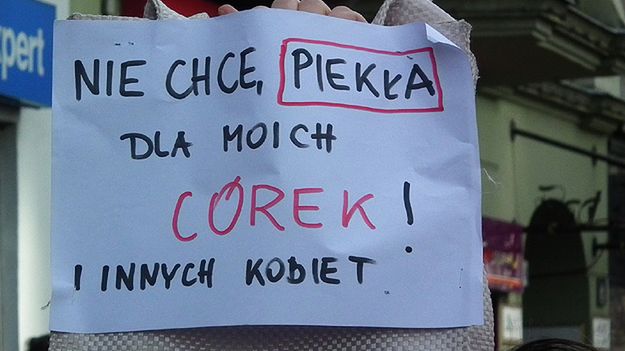 pert
NIE CHCĘ PIEKŁA
DLA MOICH
CÓREK!
I INNYCH KOBIET